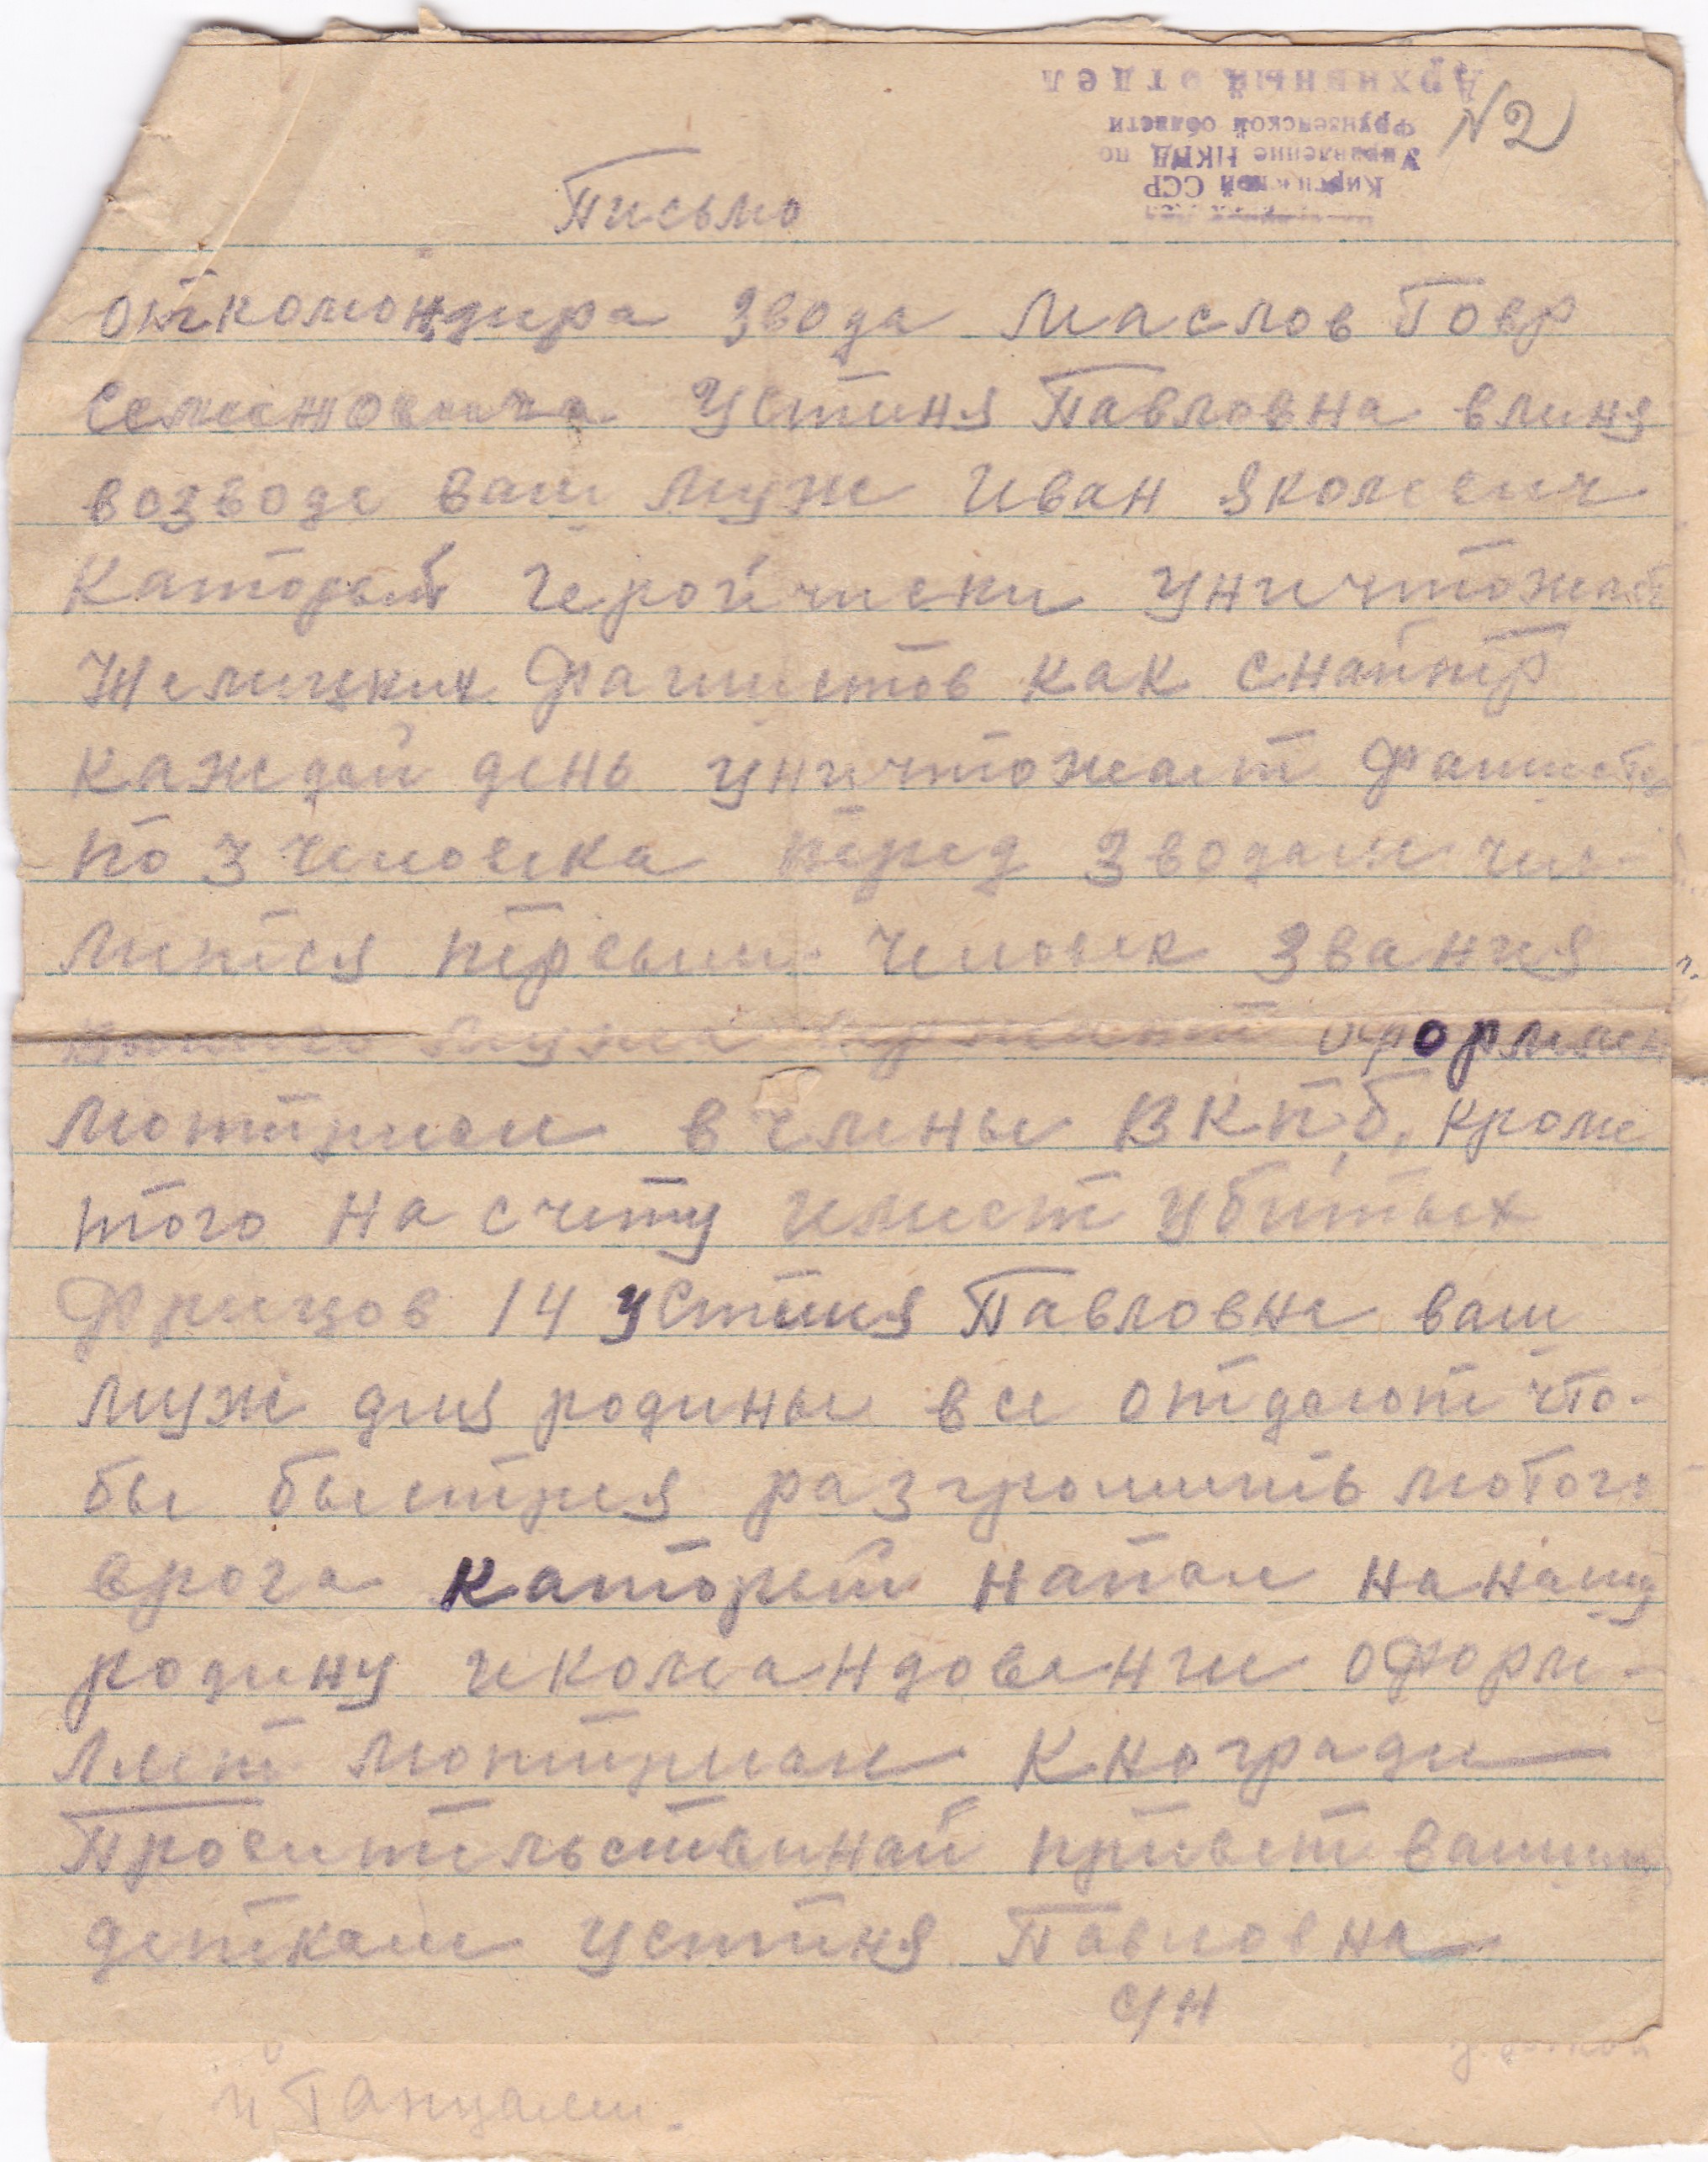 Архивный отдел
Фрунзенской области
Управление НКВД по
Киргизской ССР
N2
Письмо
от комондира звода Маслов Говр
Семеновича Устиня Павловна вминя
возводе ваш муж Иван Яколевич
Каторый геройчиски уничтожает
Немицких Фашистов как снайпер
каждой день уничтожает фашистов
по 3 человека перед зводам чис-
литься первым человек звания
вашего мужа оформлен
мотириал в члены ВКП,б, кроме
того на счету имеет убитых
Фрицов 14 устиня Павловна ваш
муж для родины все отдают что-
бы быстрея разгромить лютого
врога каторый напал на нашу
родину и командование оформ-
ляет мотириал к награди
Провительственай привет вашим
деткам устиня Павловна
с/н
и Танцами.